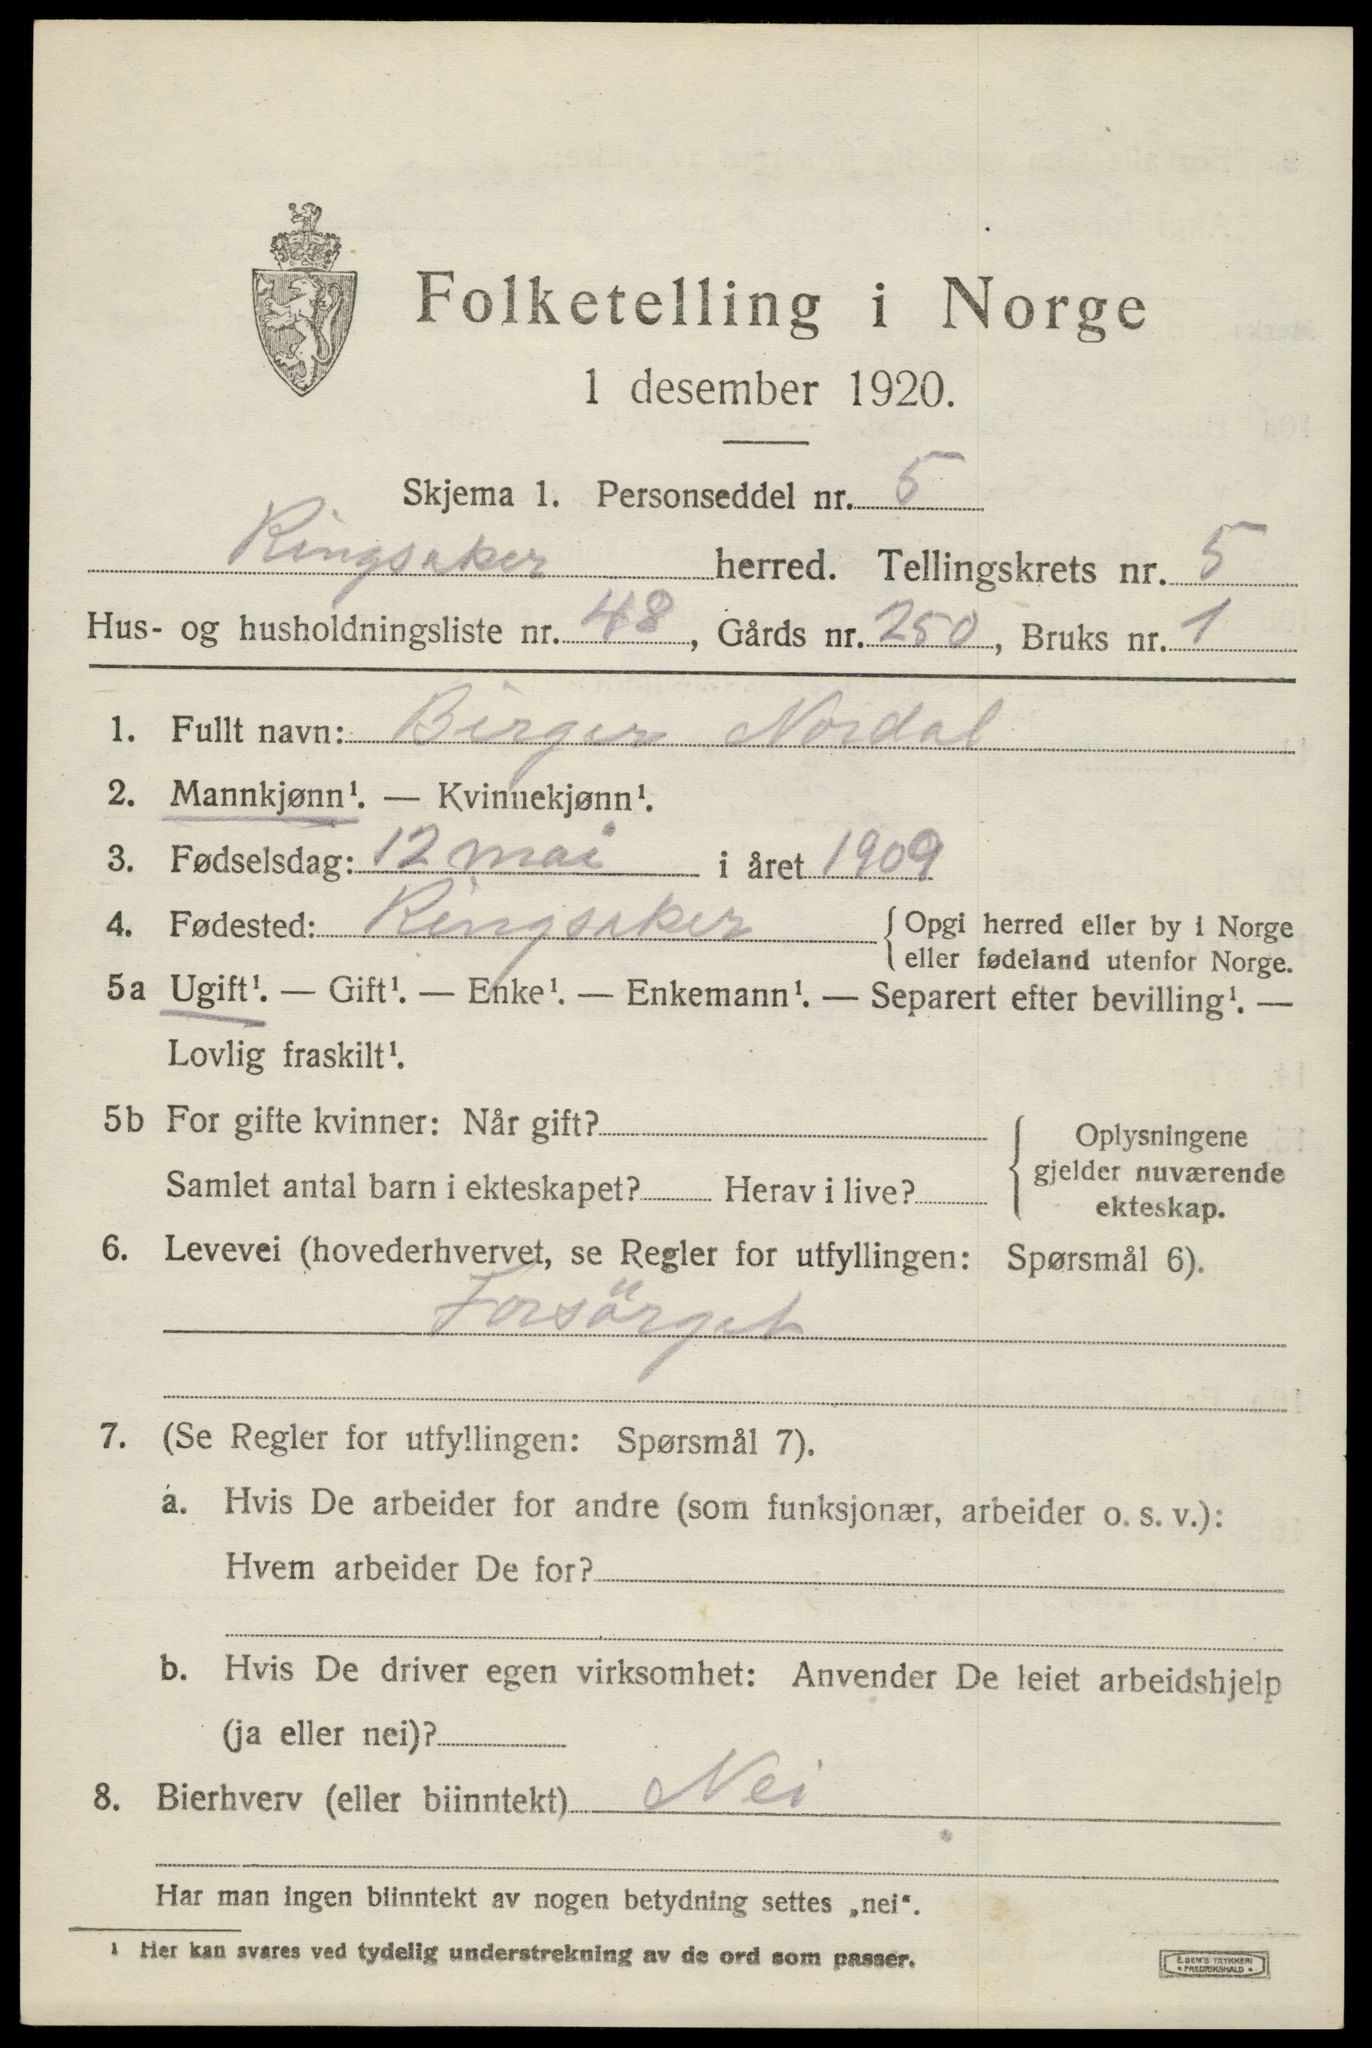 Folketelling i Norge
1 desember 1920.
Skjema 1. Personseddel nr. 5
Ringsaker herred. Tellingskrets nr. 5
Hus- og husholdningsliste nr. 48, Gårds nr. 250, Bruks nr. 1
1. Fullt navn: Birger Nordal
2. Mannkjønn¹. — Kvinnekjønn¹.
3. Fødselsdag: 12 mai i året 1909
4. Fødested: Ringsaker { Opgi herred eller by i Norge
eller fødeland utenfor Norge.
5a Ugift¹. — Gift¹. — Enke¹. — Enkemann¹. — Separert efter bevilling¹. —
Lovlig fraskilt¹.
5b For gifte kvinner: Når gift?
Samlet antal barn i ekteskapet? Herav i live?
{ Oplysningene
gjelder nuværende
ekteskap.
6. Levevei (hovederhvervet, se Regler for utfyllingen: Spørsmål 6).
Forsörget
7. (Se Regler for utfyllingen: Spørsmål 7).
a. Hvis De arbeider for andre (som funksjonær, arbeider o. s. v.):
Hvem arbeider De for?
b. Hvis De driver egen virksomhet: Anvender De leiet arbeidshjelp
(ja eller nei)?
8. Bierhverv (eller biinntekt) Nei
Har man ingen biinntekt av nogen betydning settes „nei“.
¹ Her kan svares ved tydelig understrekning av de ord som passer.
E. SEM'S TRYKKERI
• FREDRIKSHALD •